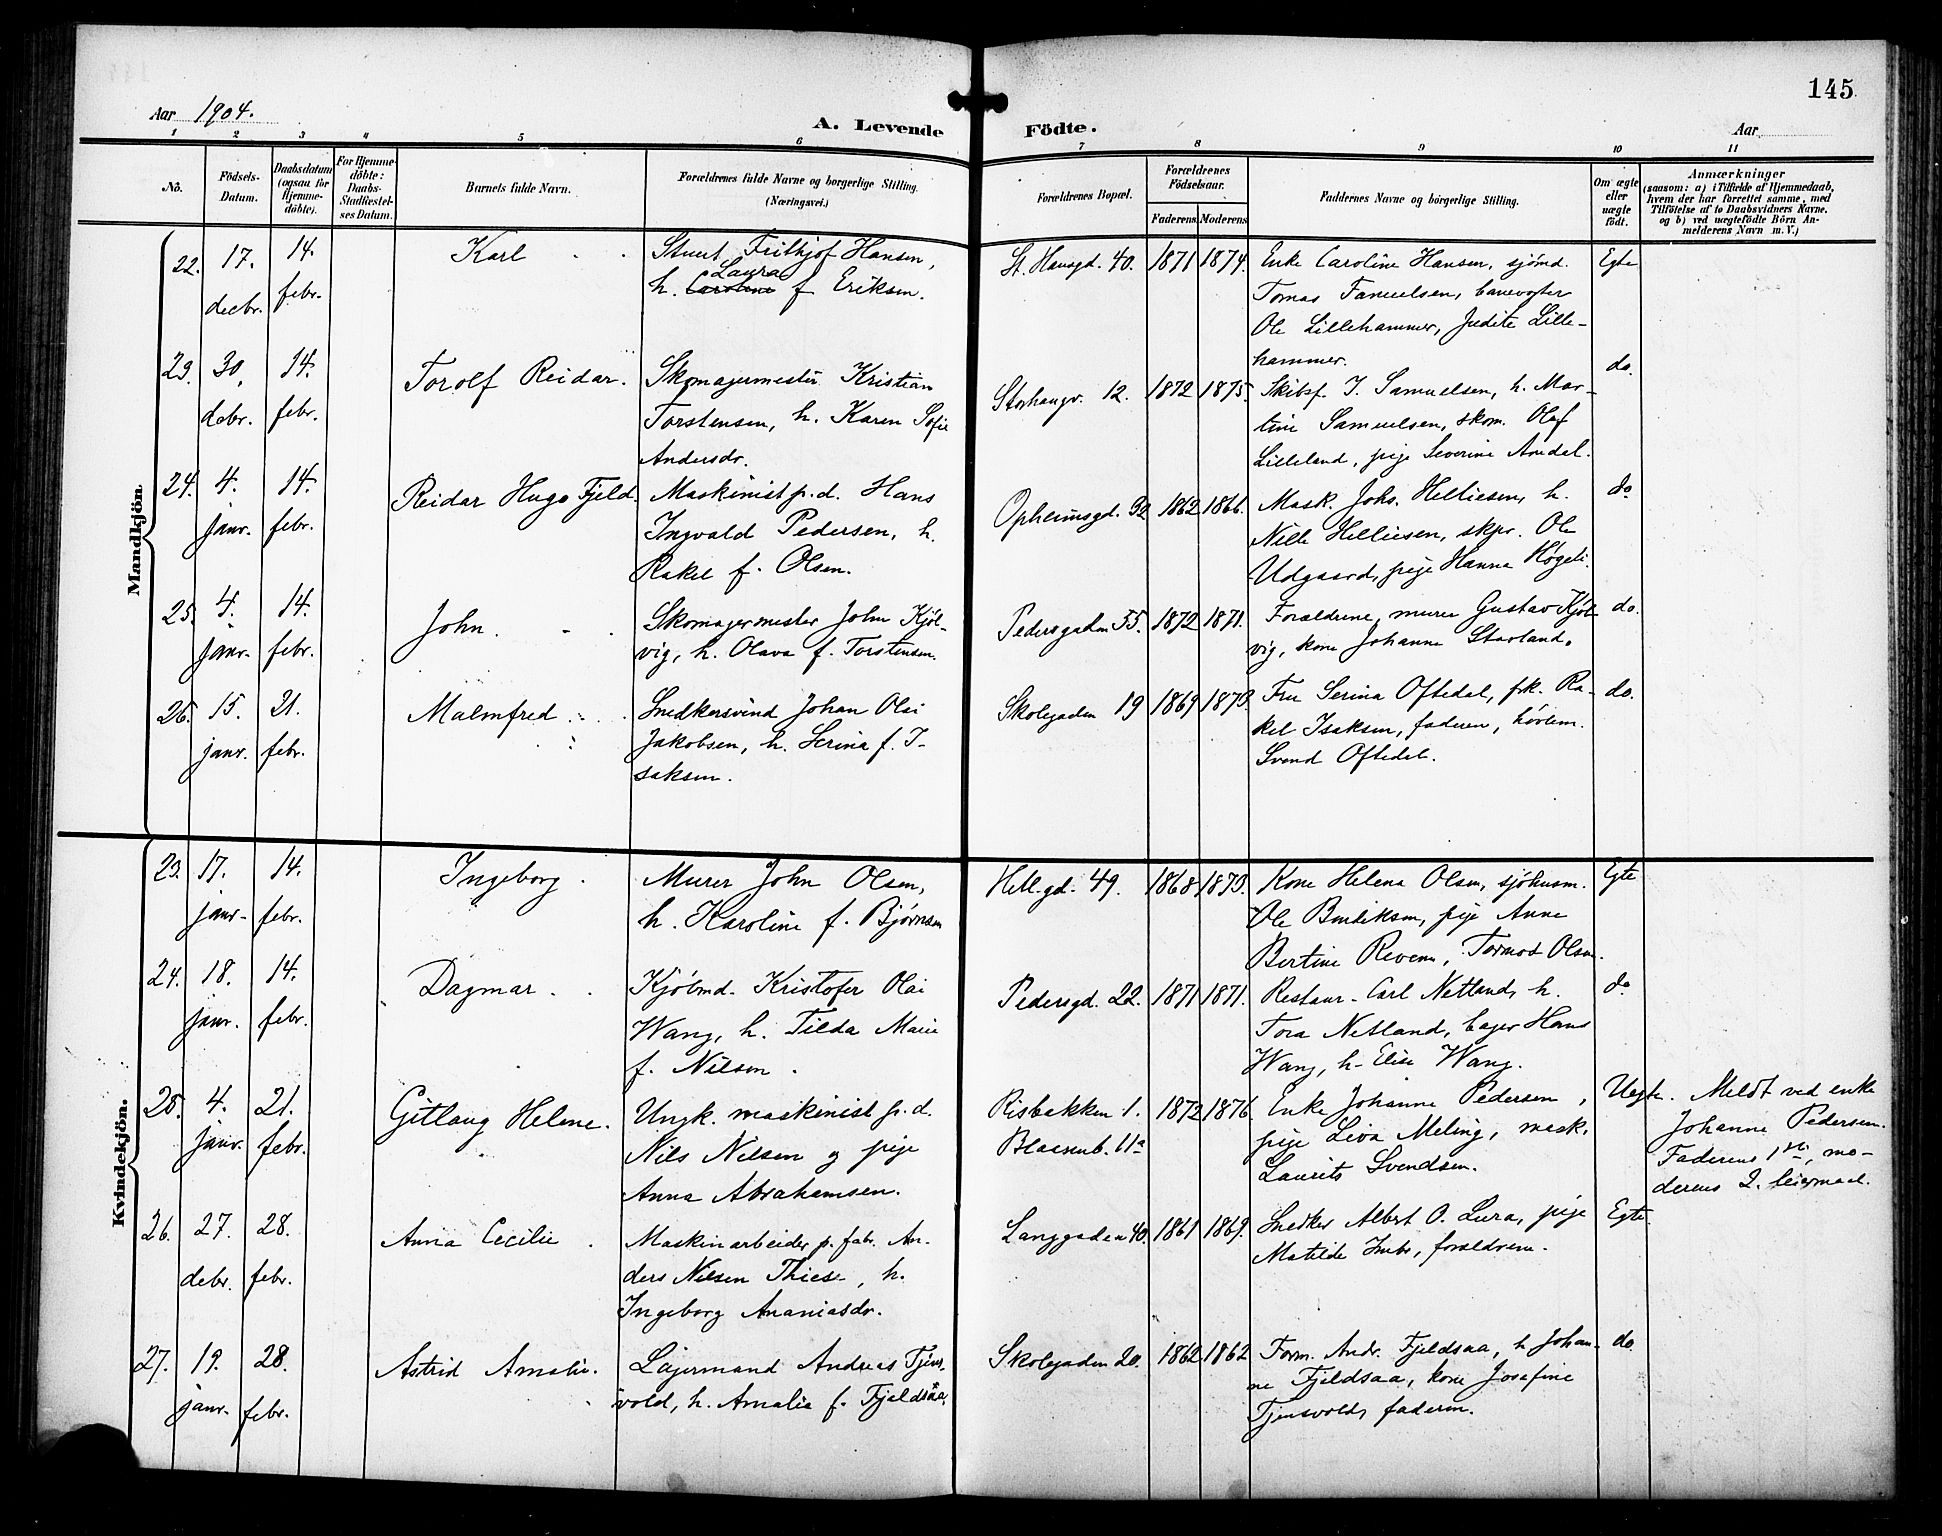 145
Aar 1904.
A. Levende Födte.
Aar
1 2 3 4 5 6 7 8 9 10 11
No.
Födsels-Datum.
Daabsdatum (ogsaa for Hjemmedöbte).
For Hjemmedöbte: Daabs-Stadfæstelses Datum.
Barnets fulde Navn.
Forældrenes fulde Navne og borgerlige Stilling. (Næringsvei.)
Forældrenes Bopæl.
Forældrenes Födselsaar.
Faderens Moderens
Faddernes Navne og börgerlige Stilling.
Om ægte eller uægte födt.
Anmærkninger
(saasom: a) i Tilfælde af Hjemmedaab, hvem der har forrettet samme, med Tilföielse af to Daabsvidners Navne, og b) ved uægtefödte Börn Anmelderens Navn m. V.)
Mandkjön.
22. 17. decbr. 14. febr.
Karl
Stuert Frithjof Hansen,
Laura
h. Caroline f Eriksen.
St. Hansgd. 40. 1871 1874.
Enke Caroline Hansen, sjömd.
Tomas Famuelsen, banevogter
Ole Lillehammer, Judite Lille-
hammer.
Egte
23. 30. debr. 14. febr.
Torolf Reidar.
Skomagermester Kristian
Torstensen, h. Karen Sofie
Andersdr.
Storhaugv. 12. 1872 1875.
Skibsf. I. Samuelsen, h. Mar-
tine Samuelsen, skom. Olaf
Lilleland, pige Severine Aredal.
do.
24. 4. janr. 14. febr.
Reidar Hugo Fjeld.
Maskinist p.d. Hans
Ingvald Pedersen, h.
Rakel f. Olsen.
Opheimsgd. 92 1862 1866.
Mask. Johs. Helliesen, h.
Nille Helliesen, skpr. Ole
Udgaard, pige Hanna Høgeli.
do
25. 4. janr. 14. febr.
John.
Skomagermester John Kjöl-
vig, h. Olava f. Torstensen.
Pedersgaden 55. 1872 1871.
Forældrene, murer Gustav Kjöl-
vig, kone Johanne Staaland.
do.
26. 15. janr. 21. febr.
Malmfred
Snedkersvend Johan Olai
Jakobsen, h. Serina f. I-
saksen.
Skolegaden 19 1869 1873.
Fru Serina Oftedal, frk. Ra-
kel Isaksen, faderen, hövlem.
Svend Oftedal.
do.
Kvindekjön.
23. 17. janr. 14. febr.
Ingeborg.
Murer John Olsen,
h. Karoline f. Bjørnsen
Hetl.gd. 49. 1868 1873.
Kone Helena Olsen, sjöhusm.
Ole Bendiksen, pige Anne
Bertine Revem, Tormod Olsen.
Egte
24. 18. janr. 14. febr.
Dagmar.
Kjöbmd. Kristofer Olai
Wang, h. Tilda Marie
f. Nilsen.
Pedersgd. 22. 1871 1871.
Restaur. Carl Netland, h.
Tora Netland, bager Hans
Wang, h. Elise Wang.
do
25. 4. janr. 21. febr.
Gitlaug Helene.
Ungk. maskinist p.d.
Nils Nilsen og pige
Anna Abrahamsen.
Risbakken 1. 1872 1876.
Blaasenb. 11a
Enke Johanne Pedersen,
pige Liva Meling, mask.
Laurits Svendsen.
Uegte.
Meldt ved enke
Johanne Pedersen.
Faderens 1ste, mo-
derens 2. leiermaal.
26. 27. debr. 28. febr.
Anna Cecilie
Maskinarbeider p. fabr. An-
ders Nilsen Thiese, h.
Ingeborg Ananiasdr.
Langgaden 40. 1861 1869.
Snedker Albert O. Lura, pige
Matilde Imbs, forældrene.
Egte.
27. 19. janr. 28. febr.
Astrid Amalie.
Lagermand Andreas Tjens-
vold, h. Amalia f. Fjeldsaa.
Skolegaden 20. 1862 1862
Form. Andr. Fjeldsaa, h Johan-
ne Fjeldsaa, kone Josefine
Tjensvold, faderen.
do.